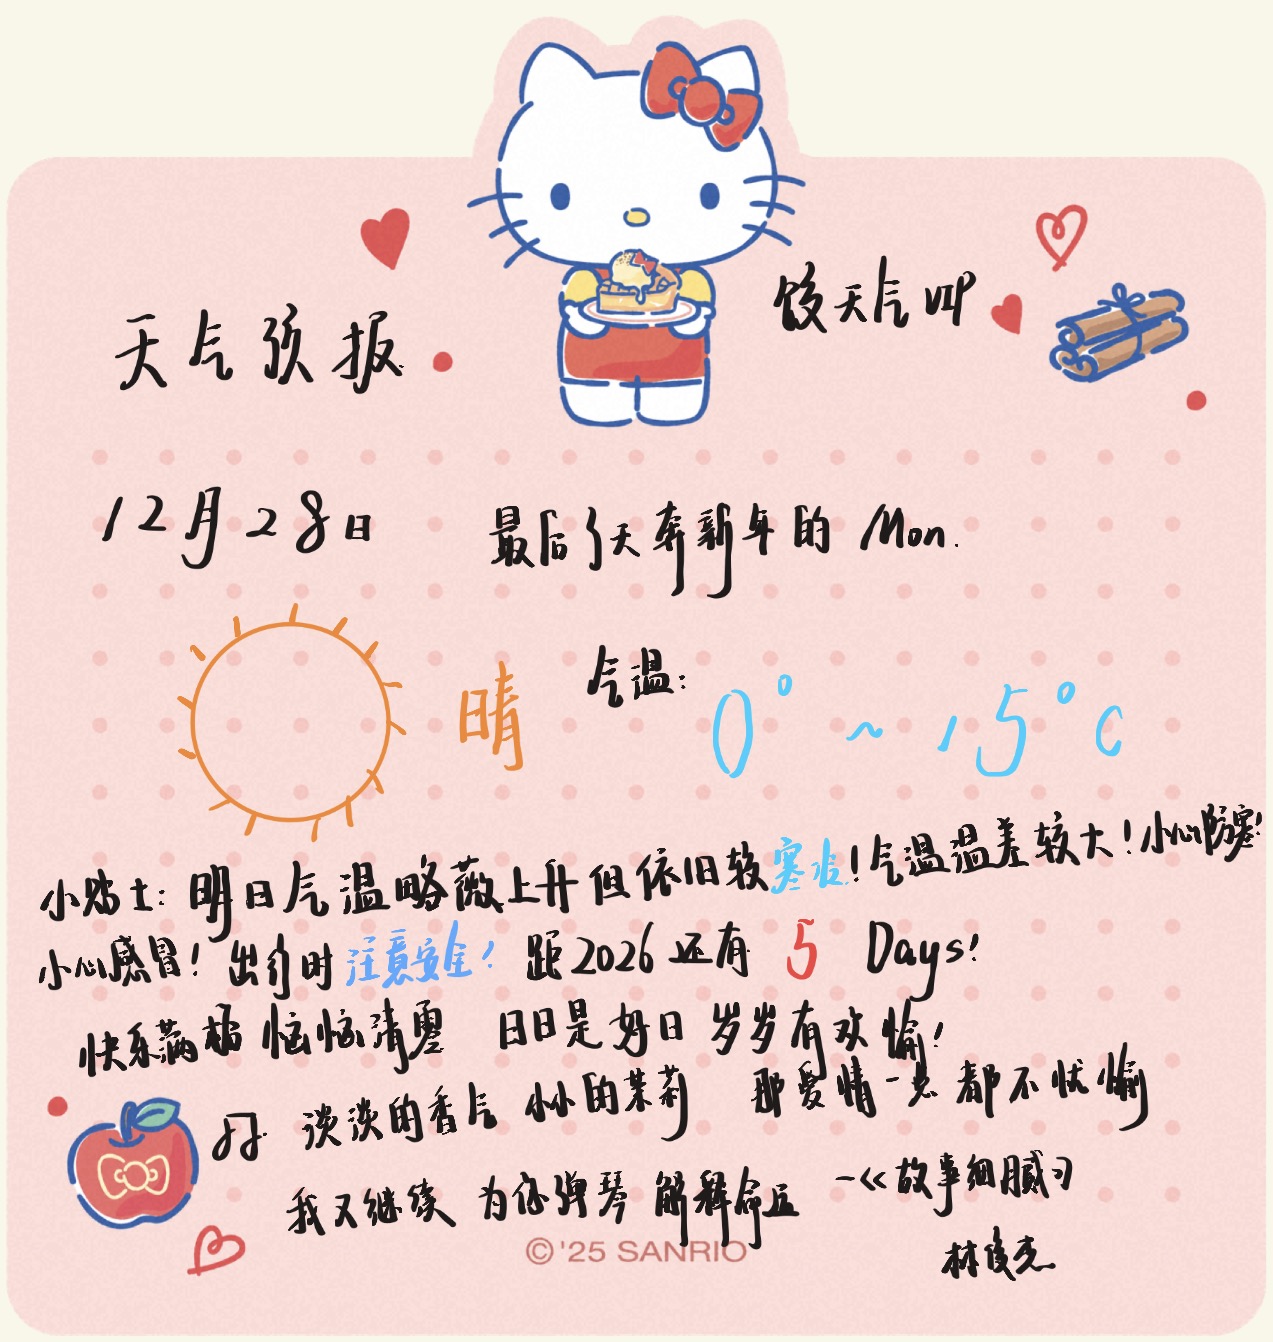 天气预报
饺天气VIP
12月28日
最后了天奔新年的 Mon.
晴
气温:
0° ~ 15°C
小贴士: 明日气温略薇上升但依旧较寒冷!气温温差较大!小心防寒!
小心感冒! 出行时注意安全! 距2026还有 5 Days!
快乐满格 恼恼清零 日日是好日 岁岁有欢愉!
淡淡的香气 小小的茉莉 那爱情一点都不忧愉
我又继续 为你弹琴 解释命运 —《故事细腻》
林俊杰
©'25 SANRIO